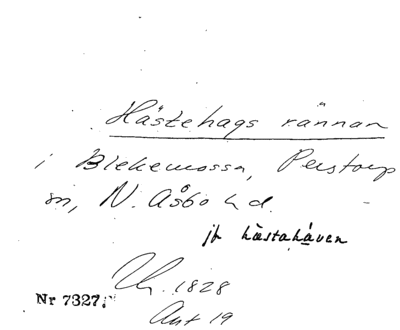 Hästehags rännan
i Blekemossa, Perstorp
sn, N. Åsbo hd.
jfr hästaháven
Uh. 1828
Akt 19
Nr 7327.